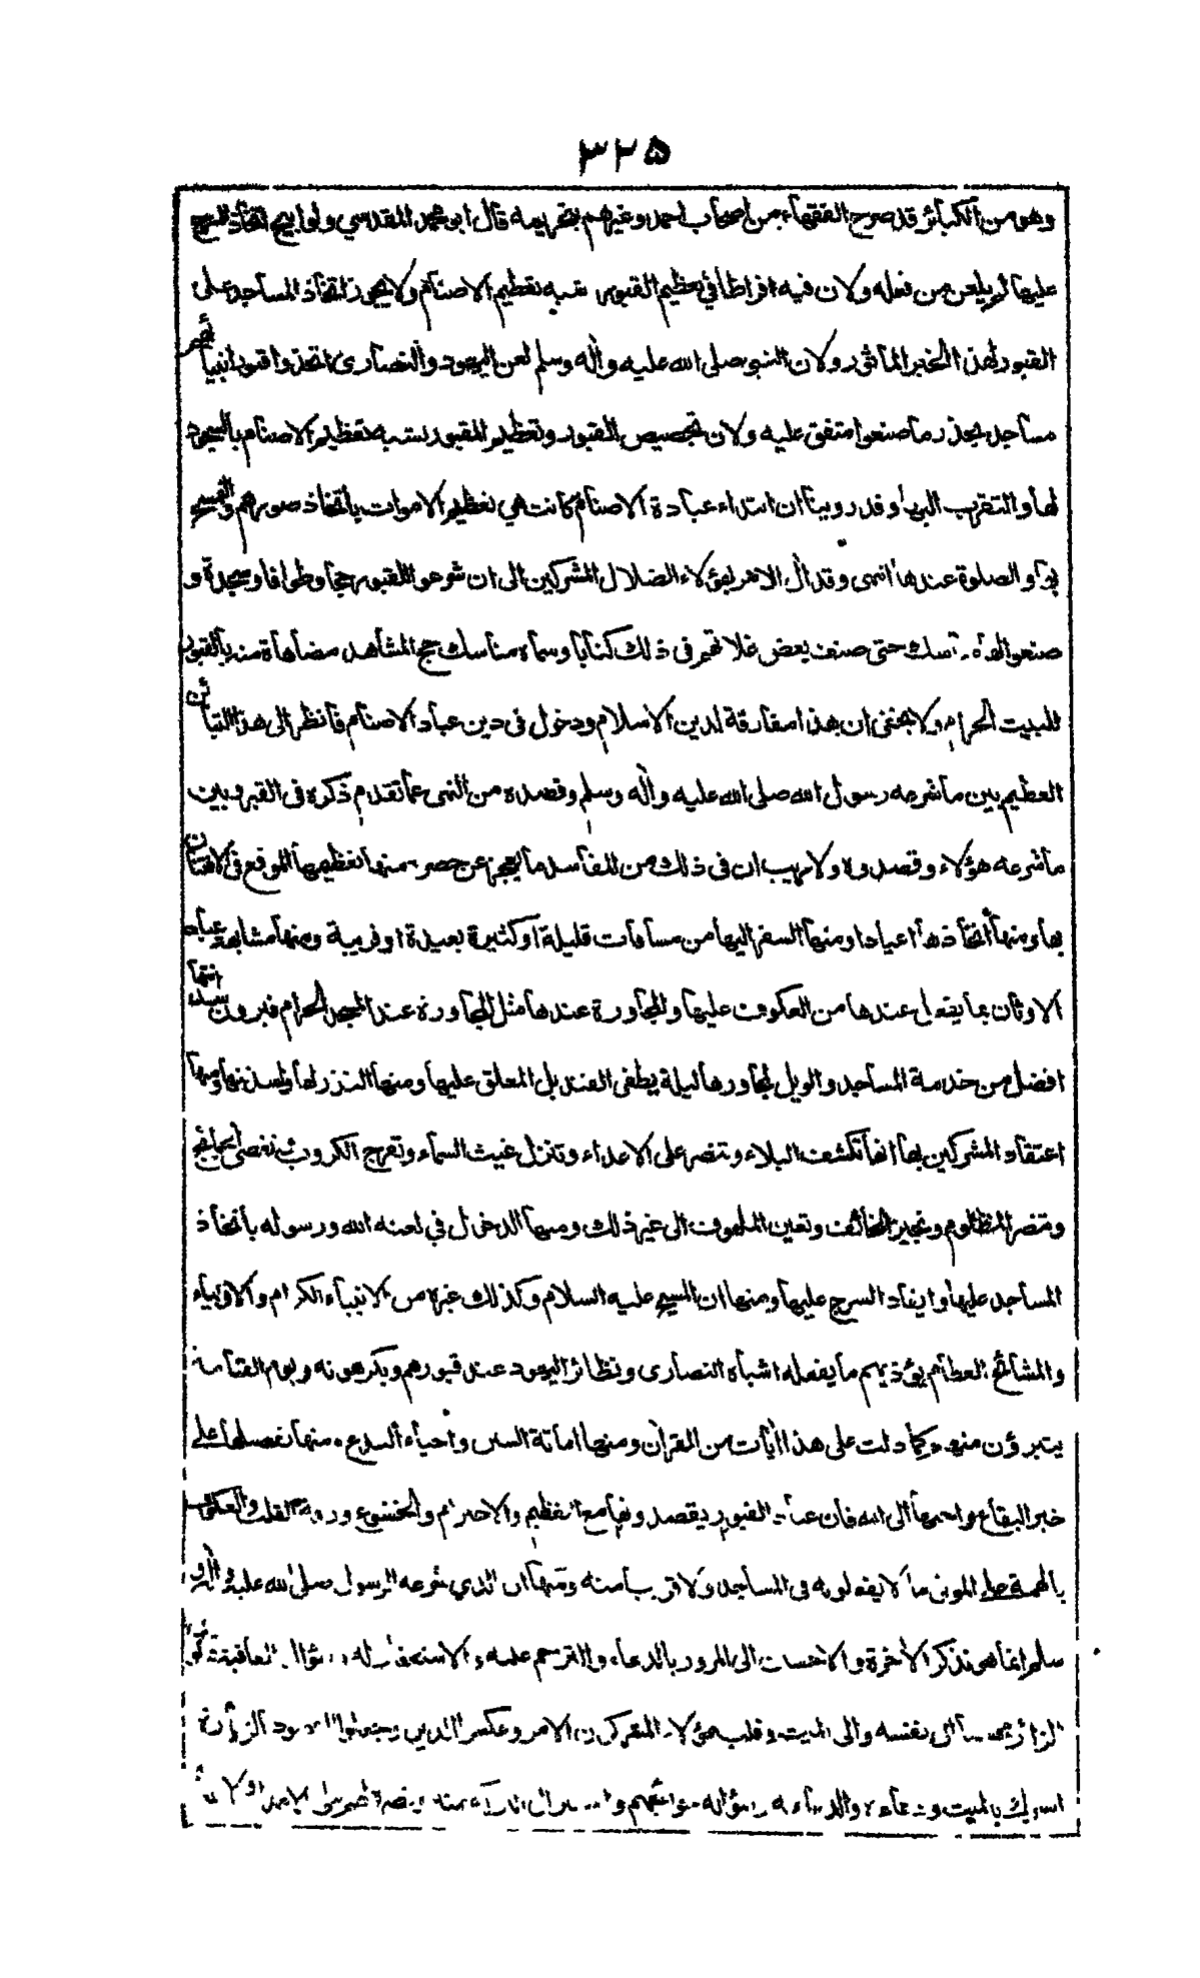 ٣٢٥
وهو من الكبائر قد صرح الفقهاء من اصحاب احمد وغيرهم بتحريمه قال ابو محمد المقدسي ولو ابيح اتخاذ السرج
عليها لم يلعن من فعله ولان فيه افراطا في تعظيم القبور شبه تعظيم الاصنام ولا يجوز اتخاذ المساجد على
القبور لهذا الخبر المأثور ولان النبي صلى الله عليه واله وسلم لعن اليهود والنصارى اتخذوا قبور انبيائهم
مساجد يحذر ما صنعوا متفق عليه ولان تجصيص القبور وتعظيم القبور يشبه تعظيم الاصنام بالسجود
لها والتقرب اليها وقد روينا ان ابتداء عبادة الاصنام كانت هي تعظيم الاموات باتخاذ صورهم والتمسح
بها والصلوة عندها انتهى وقد آل الامر بهؤلاء الضلال المشركين الى ان شرعوا للقبور حجا وطوافا وسجدة و
صنعوا لها مناسك حتى صنف بعض غلاتهم في ذلك كتابا وسماه مناسك حج المشاهد مضاهاة منه بالقبور
للبيت الحرام ولا يخفى ان هذا مفارقة لدين الاسلام ودخول في دين عباد الاصنام فانظر الى هذا التباين
العظيم بين ما شرعه رسول الله صلى الله عليه واله وسلم وقصده من النهي عما تقدم ذكره في القبر وبين
ما شرعه هؤلاء وقصدوه ولا ريب ان في ذلك من المفاسد ما يعجز عن حصره منها تعظيمها الموقع في الافتتان
بها ومنها اتخاذها اعيادا ومنها السفر اليها من مسافات قليلة او كثيرة بعيدة او قريبة ومنها مشابهة عباد
الاوثان بما يفعل عندها من العكوف عليها والمجاورة عندها مثل المجاورة عند المسجد الحرام فيرون سدانتها
افضل من خدمة المساجد والويل لمجاورها ليلة يطفى القنديل المعلق عليها ومنها النذر لها ولسدنتها ومنها
اعتقاد المشركين بها انها تكشف البلاء وتنصر على الاعداء وتنزل غيث السماء وتفرج الكروب وتقضى الحوائج
وتنصر المظلوم وتجير الخائف وتعين الملهوف الى غير ذلك ومنها الدخول في لعنه الله ورسوله باتخاذ
المساجد عليها وايقاد السرج عليها ومنها ان المسيح عليه السلام وكذلك غيره من الانبياء الكرام والاولياء
والمشائخ العظام يؤذيهم ما يفعله اشباه النصارى ونظائر اليهود عند قبورهم ويكرهونه ويوم القيامة
يتبرؤن منهم كما دلت على هذا آيات من القران ومنها اماتة السنن واحياء البدع ومنها تفضيلها على
خير البقاع واحبها الى الله فان عباد القبور يقصدونها مع التعظيم والاحترام والخشوع ورقة القلب والعكوف
بالهمة على الموتى ما لا يفعلونه في المساجد ولا قريبا منه ومنها ان الذي شرعه الرسول صلى الله عليه واله و
سلم انما هو تذكر الاخرة والاحسان الى المزور بالدعاء والترحم عليه والاستغفار له وسؤال العافية له
الزائر محسنا الى نفسه والى الميت وقلب هؤلاء المشركون الامر وعكسوا الدين وجعلوا المقصود الزيارة
الشرك بالميت ودعاءه والدعاء به وسؤاله حوائجهم